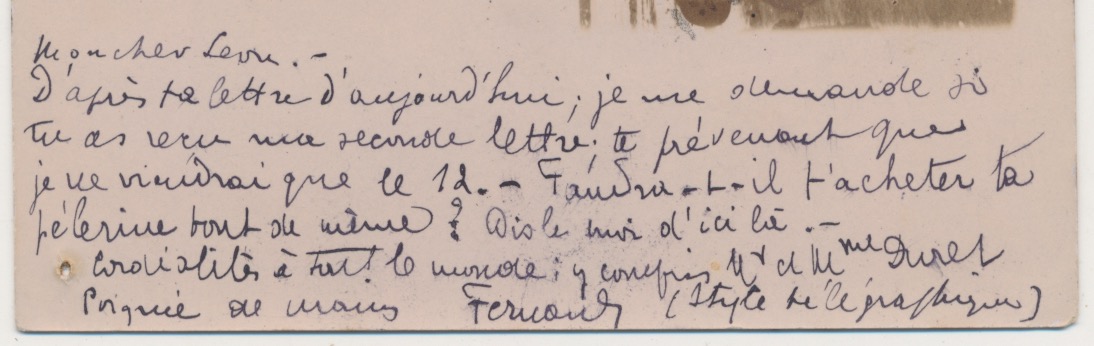 Mon cher Léon. -
D'après ta lettre d'aujourd'hui, je me demande si
tu as reçu ma seconde lettre, te prévenant que
je ne viendrai que le 12. - Faudra-t-il t'acheter ta
pélerine tout de même ? Dis le moi d'ici là. -
Cordialités à tout le monde ; y compris Mr et Mme Duret
Poignée de mains Fernand (Style télégraphique)